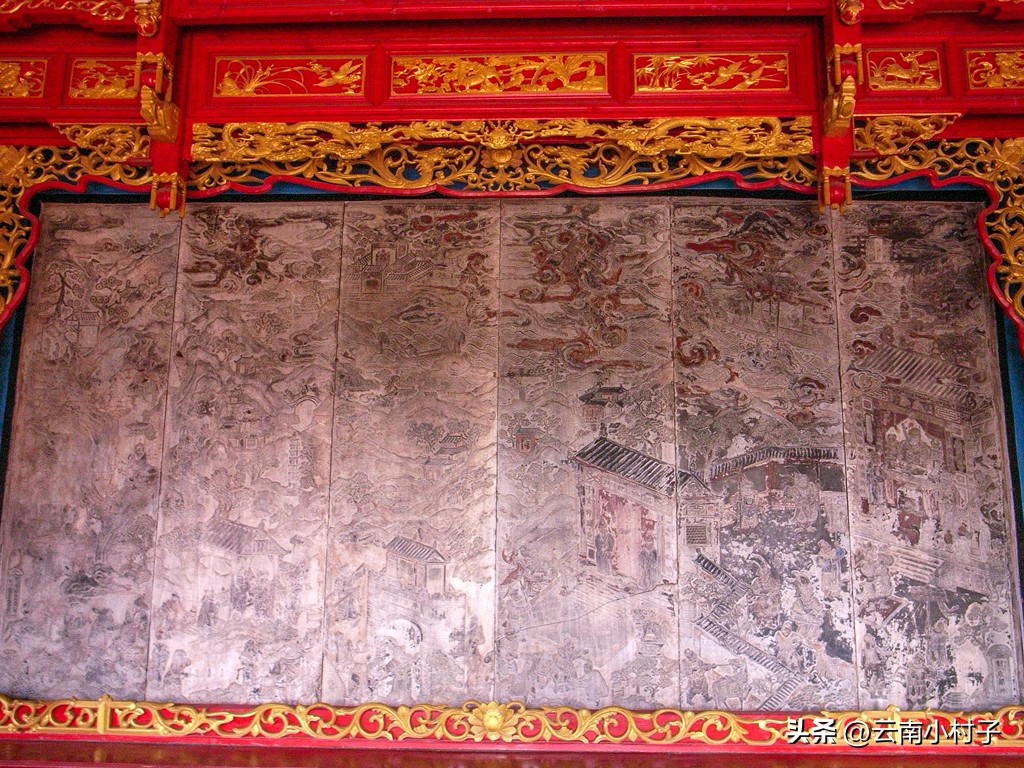 头条 @云南小村子